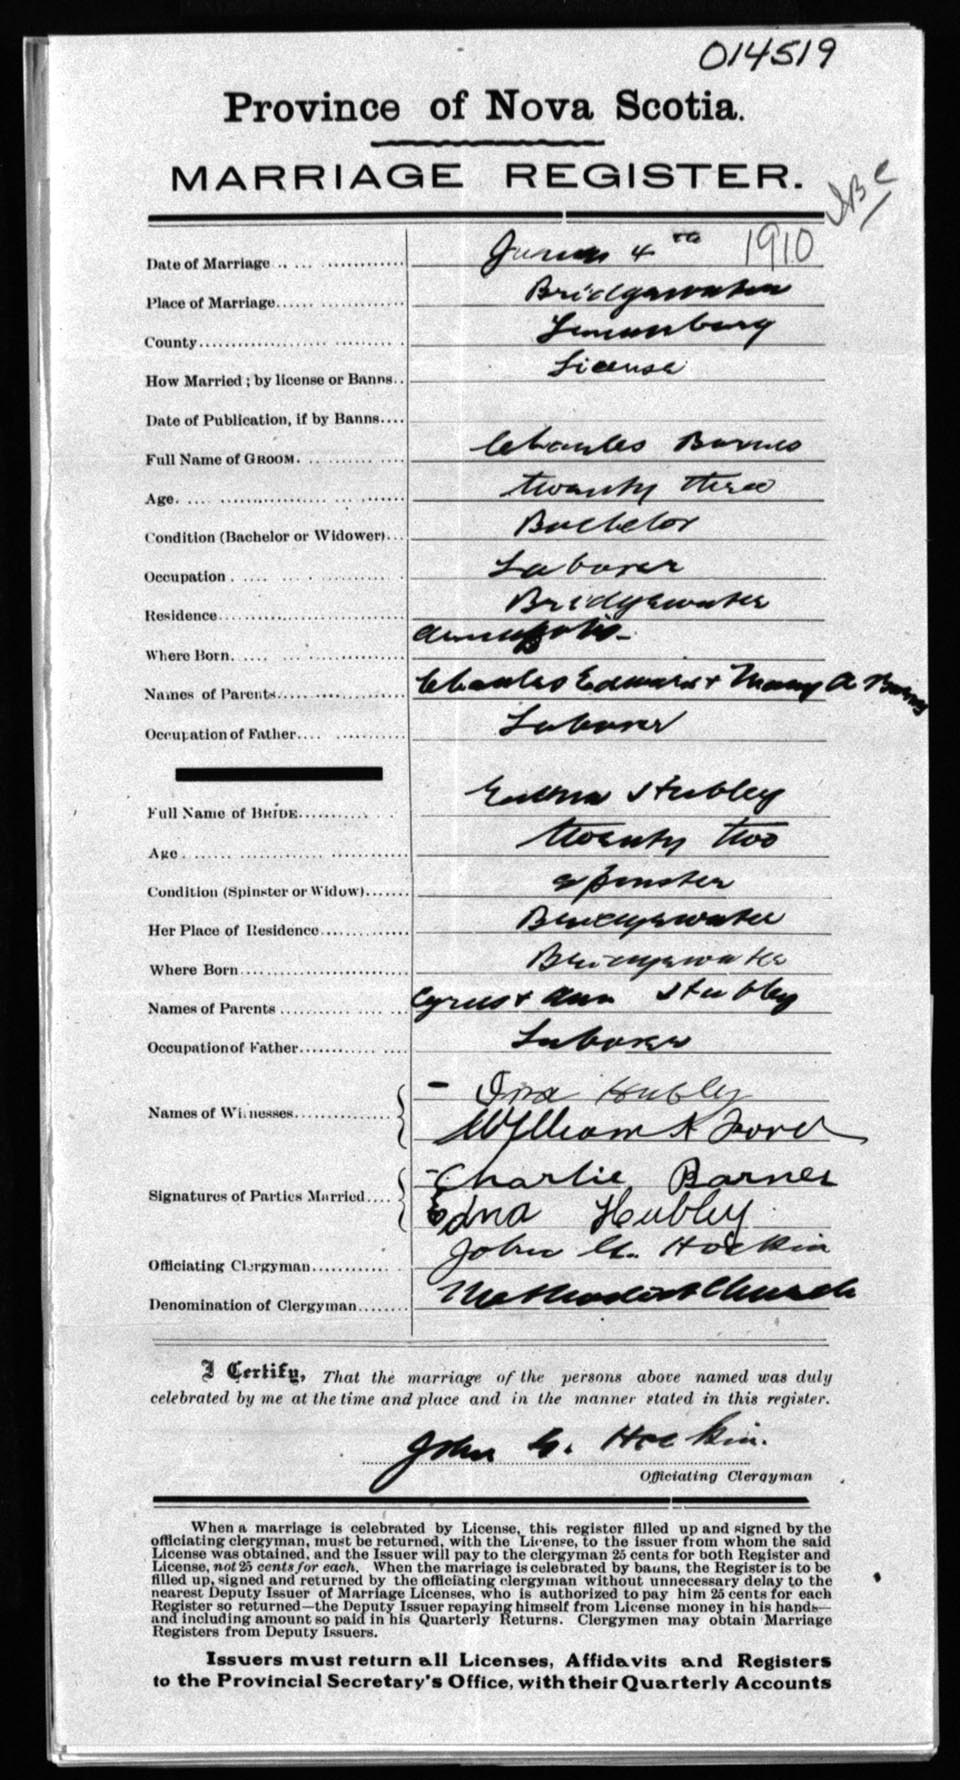 014519
Province of Nova Scotia.
MARRIAGE REGISTER.
Date of Marriage June 4th 1910
Place of Marriage Bridgewater
County Lunenburg
How Married; by license or Banns.. License
Date of Publication, if by Banns....
Full Name of GROOM. Charles Barnes
Age. twenty three
Condition (Bachelor or Widower)... Bachelor
Occupation Laborer
Residence Bridgewater
Where Born. Annapolis
Names of Parents Charles Edward + Mary A Barnes
Occupation of Father Laborer
Full Name of BRIDE Edna Hubley
Age twenty two
Condition (Spinster or Widow) Spinster
Her Place of Residence Bridgewater
Where Born Bridgewater
Names of Parents Cyrus + Ann Hubley
Occupation of Father Laborer
Names of Witnesses - Ina Hubley
William A Ford
Signatures of Parties Married - Charlie Barnes
Edna Hubley
Officiating Clergyman John G. Hockin
Denomination of Clergyman Methodist Church
I Certify, That the marriage of the persons above named was duly
celebrated by me at the time and place and in the manner stated in this register.
John G. Hockin.
Officiating Clergyman
When a marriage is celebrated by License, this register filled up and signed by the
officiating clergyman, must be returned, with the License, to the issuer from whom the said
License was obtained, and the Issuer will pay to the clergyman 25 cents for both Register and
License, not 25 cents for each. When the marriage is celebrated by banns, the Register is to be
filled up, signed and returned by the officiating clergyman without unnecessary delay to the
nearest Deputy Issuer of Marriage Licenses, who is authorized to pay him 25 cents for each
Register so returned—the Deputy Issuer repaying himself from License money in his hands—
and including amount so paid in his Quarterly Returns. Clergymen may obtain Marriage
Registers from Deputy Issuers.
Issuers must return all Licenses, Affidavits and Registers
to the Provincial Secretary's Office, with their Quarterly Accounts